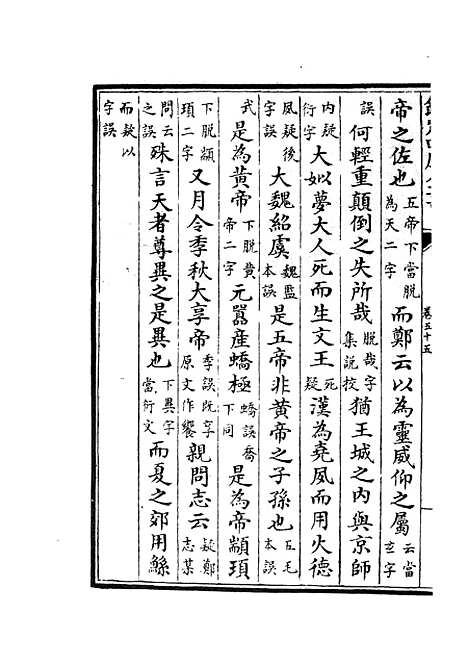 卷五十五
帝之佐也五帝下當脫為天二字而鄭云以為靈威仰之屬云當玄字
誤何輕重顛倒之失所哉脫哉字集說挍猶王城之內與京師
內疑衍字大如夢大人死而生文王死疑漢為堯夙而用火德
夙疑後字誤大魏紹虞魏監本誤是五帝非黃帝之子孫也五毛本誤
武是為黃帝下脫黃帝二字元囂産蟜極蟜誤喬下同是為帝顓頊
下脫顓頊二字又月令季秋大享帝季誤既享原文作饗親問志云疑鄭志某
問云之誤殊言天者尊異之是異也下異字當衍文而夏之郊用鯀
而疑以字誤